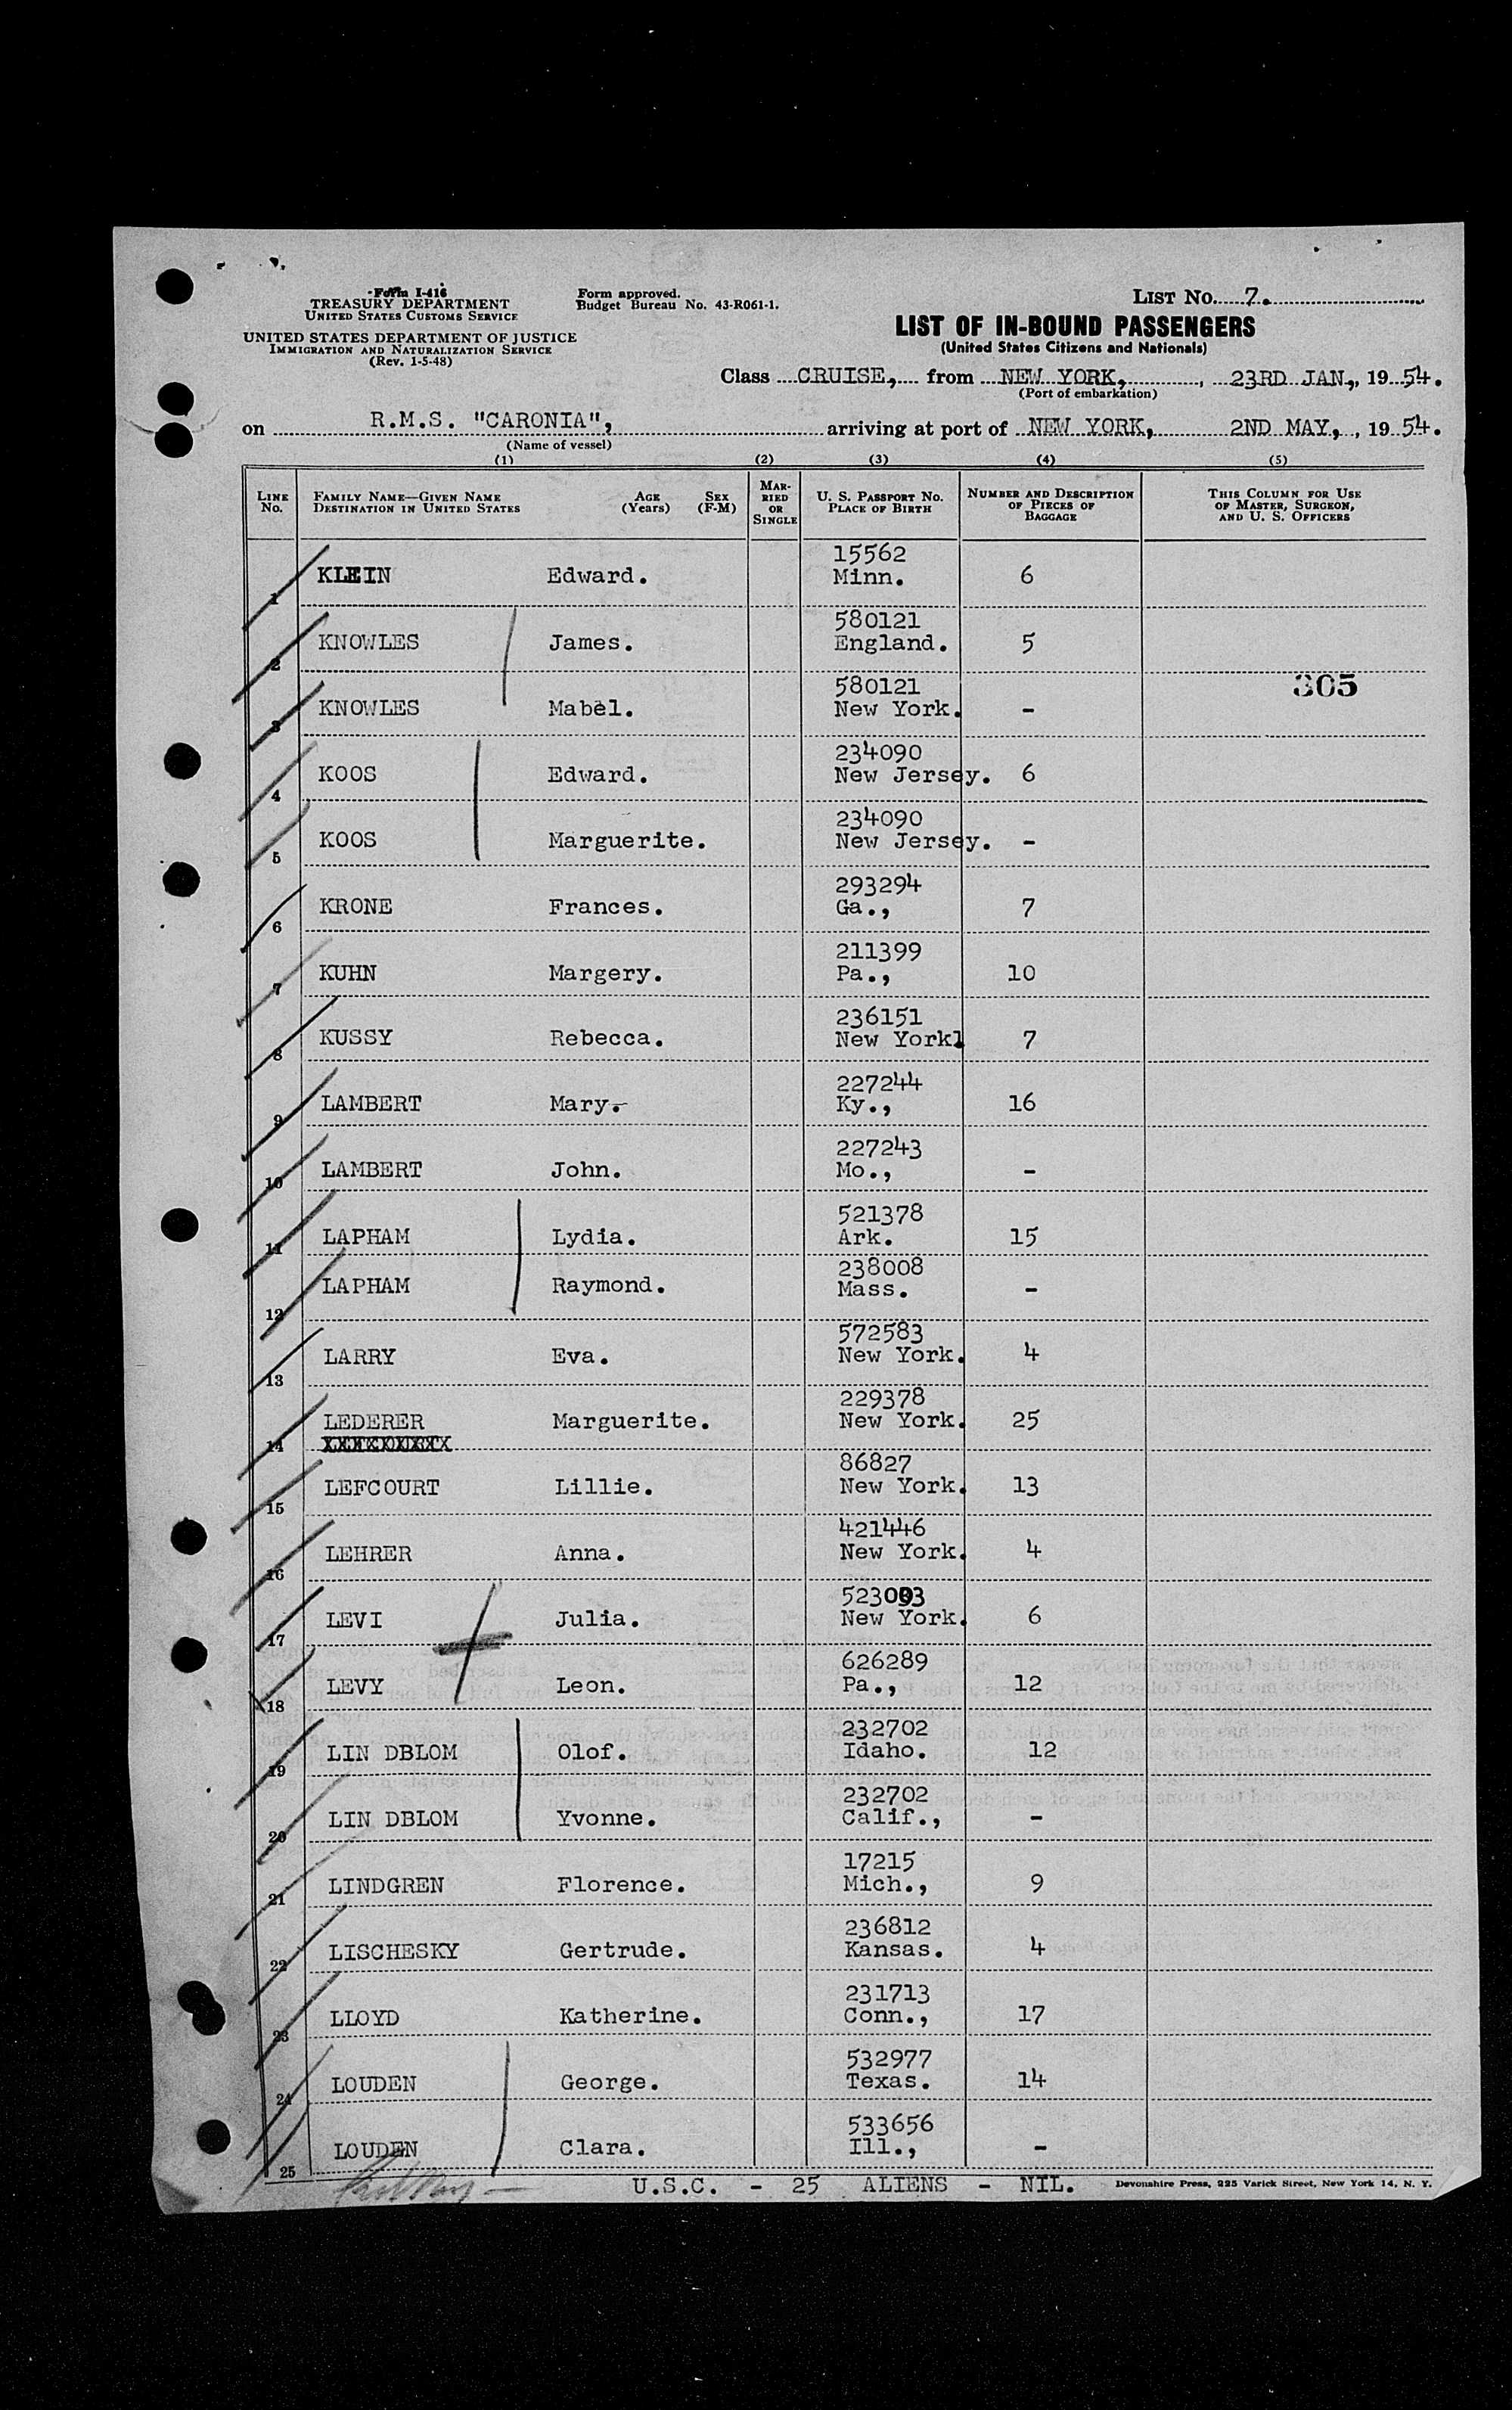 Form I-416
TREASURY DEPARTMENT
UNITED STATES CUSTOMS SERVICE
UNITED STATES DEPARTMENT OF JUSTICE
IMMIGRATION AND NATURALIZATION SERVICE
(Rev. 1-5-48)
Form approved.
Budget Bureau No. 43-R061-1.
LIST No. 7.
LIST OF IN-BOUND PASSENGERS
(United States Citizens and Nationals)
Class CRUISE, from NEW YORK, , 23RD JAN., 19 54.
(Port of embarkation)
on R.M.S. "CARONIA", arriving at port of NEW YORK, 2ND MAY, , 19 54.
(Name of vessel)
(1) (2) (3) (4) (5)
LINE No. FAMILY NAME—GIVEN NAME DESTINATION IN UNITED STATES AGE (Years) SEX (F-M) MARRIED OR SINGLE U. S. PASSPORT No. PLACE OF BIRTH NUMBER AND DESCRIPTION OF PIECES OF BAGGAGE THIS COLUMN FOR USE OF MASTER, SURGEON, AND U. S. OFFICERS
15562
1 KLEIN Edward. Minn. 6
580121
2 KNOWLES James. England. 5
305
580121
3 KNOWLES Mabel. New York. -
234090
4 KOOS Edward. New Jersey. 6
234090
5 KOOS Marguerite. New Jersey. -
293294
6 KRONE Frances. Ga., 7
211399
7 KUHN Margery. Pa., 10
236151
8 KUSSY Rebecca. New York. 7
227244
9 LAMBERT Mary. Ky., 16
227243
10 LAMBERT John. Mo., -
521378
11 LAPHAM Lydia. Ark. 15
238008
12 LAPHAM Raymond. Mass. -
572583
13 LARRY Eva. New York. 4
229378
14 LEDERER Marguerite. New York. 25
86827
15 LEFCOURT Lillie. New York. 13
421446
16 LEHRER Anna. New York. 4
17 LEVI Julia. New York. 6
626289
18 LEVY Leon. Pa., 12
232702
19 LIN DBLOM Olof. Idaho. 12
232702
20 LIN DBLOM Yvonne. Calif., -
17215
21 LINDGREN Florence. Mich., 9
236812
22 LISCHESKY Gertrude. Kansas. 4
231713
23 LLOYD Katherine. Conn., 17
532977
24 LOUDEN George. Texas. 14
533656
25 LOUDEN Clara. Ill., -
U.S.C. - 25 ALIENS - NIL.
Devonshire Press, 225 Varick Street, New York 14, N. Y.